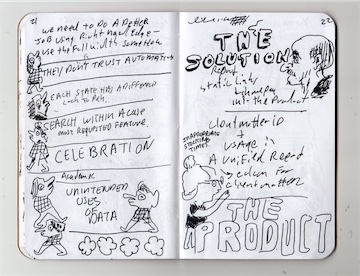 21
WE NEED TO DO A BETTER
JOB USING Right Hand Edge-
use the full width
THEY DON'T TRUST AUTOMATION
EACH STATE HAS A DIFFERENT
SEARCH WITHIN A CASE
MOST REQUESTED FEATURE.
CELEBRATION
Academic
UNINTENDED
USES
OF
DATA
22
THE
SOLUTION
Report
static links
into the Product
client matter ID
+
USAGE in
A Unified Report
column for
client matter
INAPPROPRIATE
STOCKING
STUFFERS
THE
PRODUCT